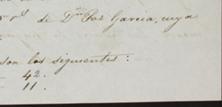 de D.ⁿ Paz Garcia, cuya
son los siguientes:
42.
11.